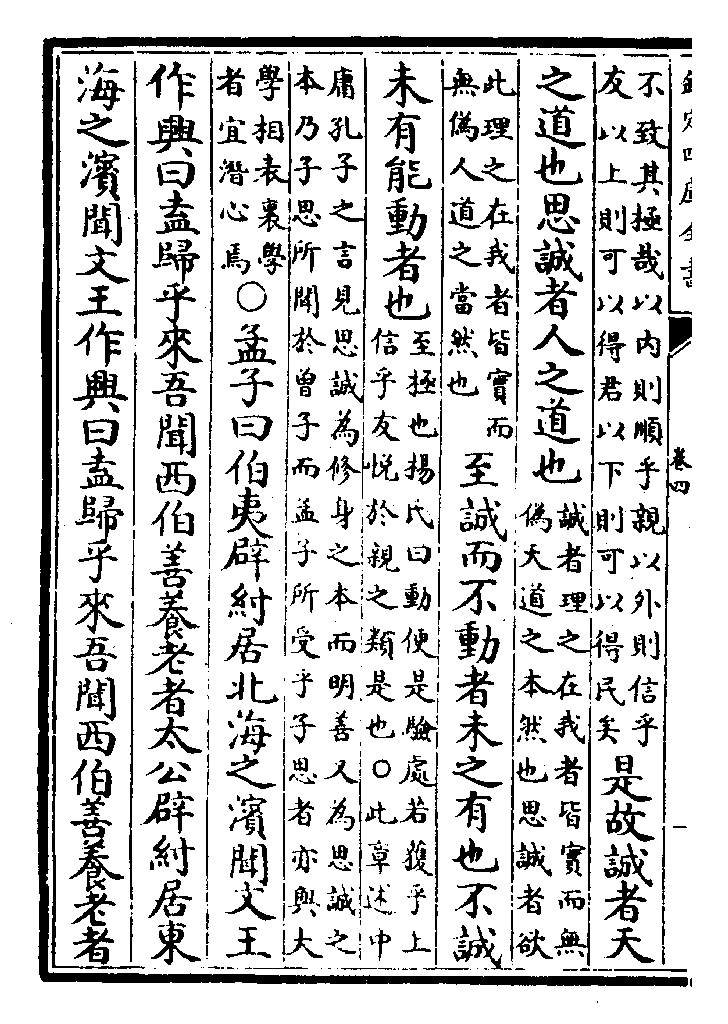 欽定四庫全書
卷四
不致其極哉以内則順乎親以外則信乎
友以上則可以得君以下則可以得民矣
是故誠者天
之道也思誠者人之道也
誠者理之在我者皆實而無
偽天道之本然也思誠者欲
此理之在我者皆實而
無偽人道之當然也
至誠而不動者未之有也不誠
未有能動者也
至極也揚氏曰動便是驗處若獲乎上
信乎友悦於親之類是也○此章述中
庸孔子之言見思誠為修身之本而明善又為思誠之
本乃子思所聞於曾子而孟子所受乎子思者亦與大
學相表裏學
者宜潛心焉
○孟子曰伯夷辟紂居北海之濱聞文王
作興曰盍歸乎來吾聞西伯善養老者太公辟紂居東
海之濱聞文王作興曰盍歸乎來吾聞西伯善養老者